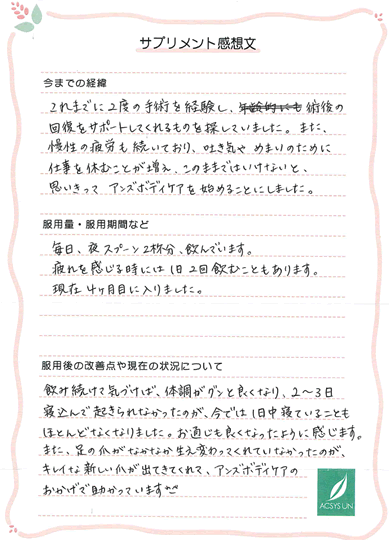 サプリメント感想文
今までの経緯
これまでに2度の手術を経験し、年齢的にも術後の
回復をサポートしてくれるものを探していました。また、
慢性の疲労も続いており、吐き気やめまいのために
仕事を休むことが増え、このままではいけないと、
思いきって アンズボディケアを始めることにしました。
服用量・服用期間など
毎日、夜スプーン2杯分、飲んでいます。
疲れを感じる時には1日2回飲むこともあります。
現在4ヶ月目に入りました。
服用後の改善点や現在の状況について
飲み続けて気づけば、体調がグンと良くなり、2〜3日
寝込んで起きられなかったのが、今では1日中寝ていることも
ほとんどなくなりました。お通じも良くなったように感じます。
また、足の爪がなかなか生え変わってくれていなかったのが、
キレイな新しい爪が出てきてくれて、アンズボディケアの
おかげで助かっています
ACSYS UN